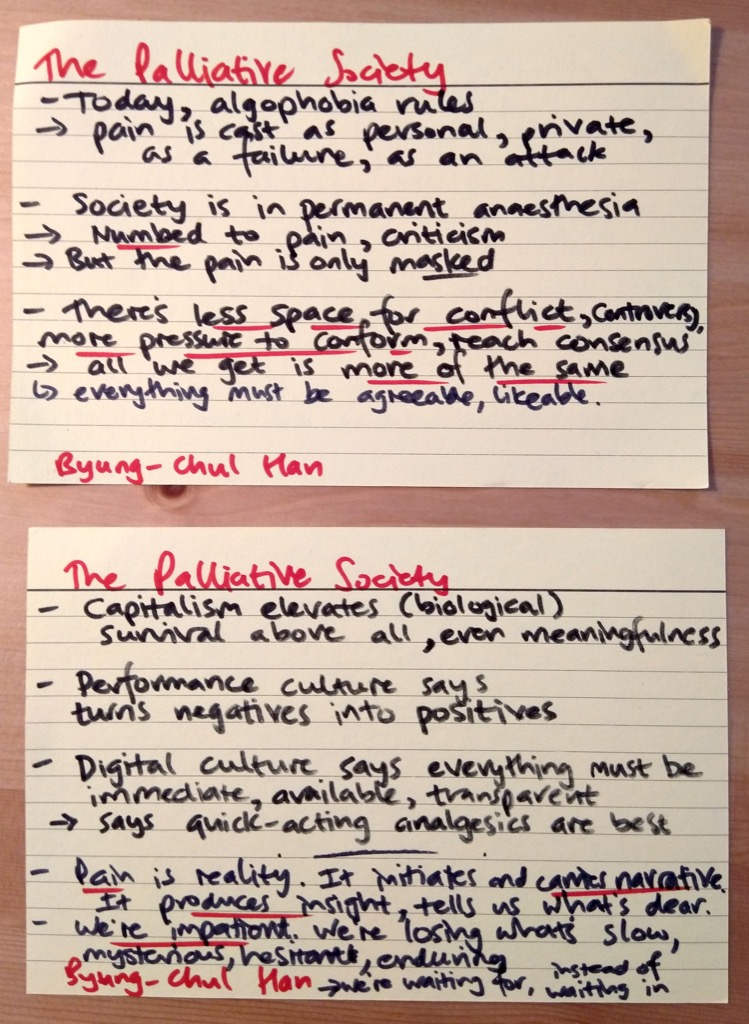 The Palliative Society
- Today, algophobia rules
→ pain is cast as personal, private,
as a failure, as an attack
- Society is in permanent anaesthesia
→ Numbed to pain, criticism
→ But the pain is only masked
- There's less space for conflict, controversy,
more pressure to conform, reach consensus
→ all we get is more of the same
↳ everything must be agreeable, likeable.
Byung-Chul Han
The Palliative Society
- Capitalism elevates (biological)
survival above all, even meaningfulness
- Performance culture says
turns negatives into positives
- Digital culture says everything must be
immediate, available, transparent
→ says quick-acting analgesics are best
- Pain is reality. It initiates and carries narrative.
It produces insight, tells us what's dear.
- We're impatient. We're losing what's slow,
mysterious, hesitant, enduring
Byung-Chul Han → we're waiting for, instead of
waiting in